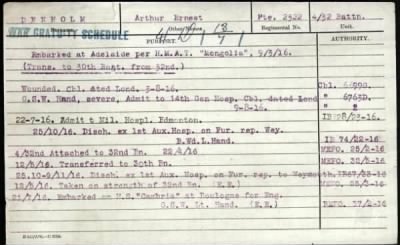 DENHOLM Arthur Ernest Pte. 2322 4/32 Battn.
WAR GRATUITY SCHEDULE
Other Names Regimental No. Unit.
PURPORT. AUTHORITY.
Embarked at Adelaide per H.M.A.T. "Mongolia", 9/3/16.
(Trans. to 30th Batt. from 32nd.)
Wounded. Cbl. dated Lond. 3-8-16. Cbl.
G.S.W. Hand, severe, Admit to 14th Gen Hosp. Cbl. dated Lond " 6763D.
9-8-16.
22-7-16. Admit t Mil. Hospl. Edmonton. IB 28/23-16
25/10/16. Disch. ex 1st Aux.Hosp. on Fur. rep. Wey.
B.Wd.L.Hand. IB 74/22-16
4/32nd Attached to 32nd Bn. 22/4/16 MEFO. 25/2-16
12/5/16. Transferred to 30th Bn. MEFO. 30/3-16
25.10-9/11/16. Disch. ex 1st Aux. Hosp. on Fur. rep. to Weymouth. IB67/33-16
12/5/16. Taken on strength of 32nd Bn. (E.E.) MEFO. 32/5-16
21/7/16. Embarked on H.S. "Cambria" at Boulogne for Eng.
G.S.W. Lt. Hand. (E.E.) REFO. 17/2-16